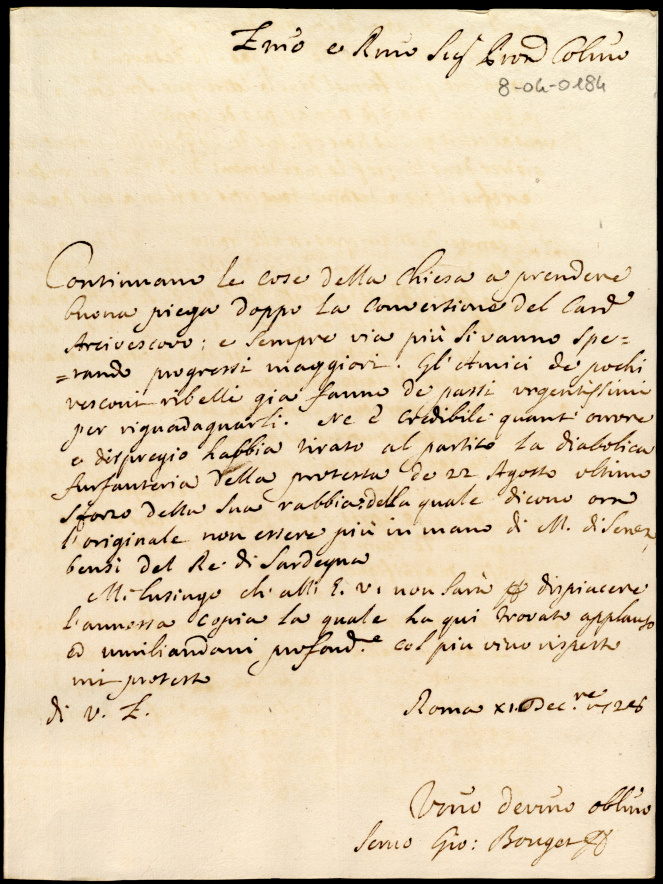 Emo e Rmo Sigr Pron Colmo
8-04-0184
Continuano le cose della Chiesa a prendere
buona piega doppo la Conversione del Card
Arcivescovo; e sempre via più si vanno spe-
=rando progressi maggiori. Gl'Amici de pochi
vescovi ribelli già fanno de passi urgentissimi
per riguadagnarli. Ne è credibile quant'orrore
e dispregio habbia tirato al partito la diabolica
furfanteria della protesta de 22 Agosto ultimo
sforzo della sua rabbia; della quale dicono ora
l'originale non essere più in mano di M. di Senez
bensi del Re di Sardegna
Mi lusingo ch'all E. V. non sarà per dispiacere
l'annessa copia la quale ha qui trovato applauso
ed umiliandomi profond.e col più vivo rispetto
mi protesto
di V. E.
Roma XI. Dec.re
Umo devmo obbmo
Servo Gio: Bouget